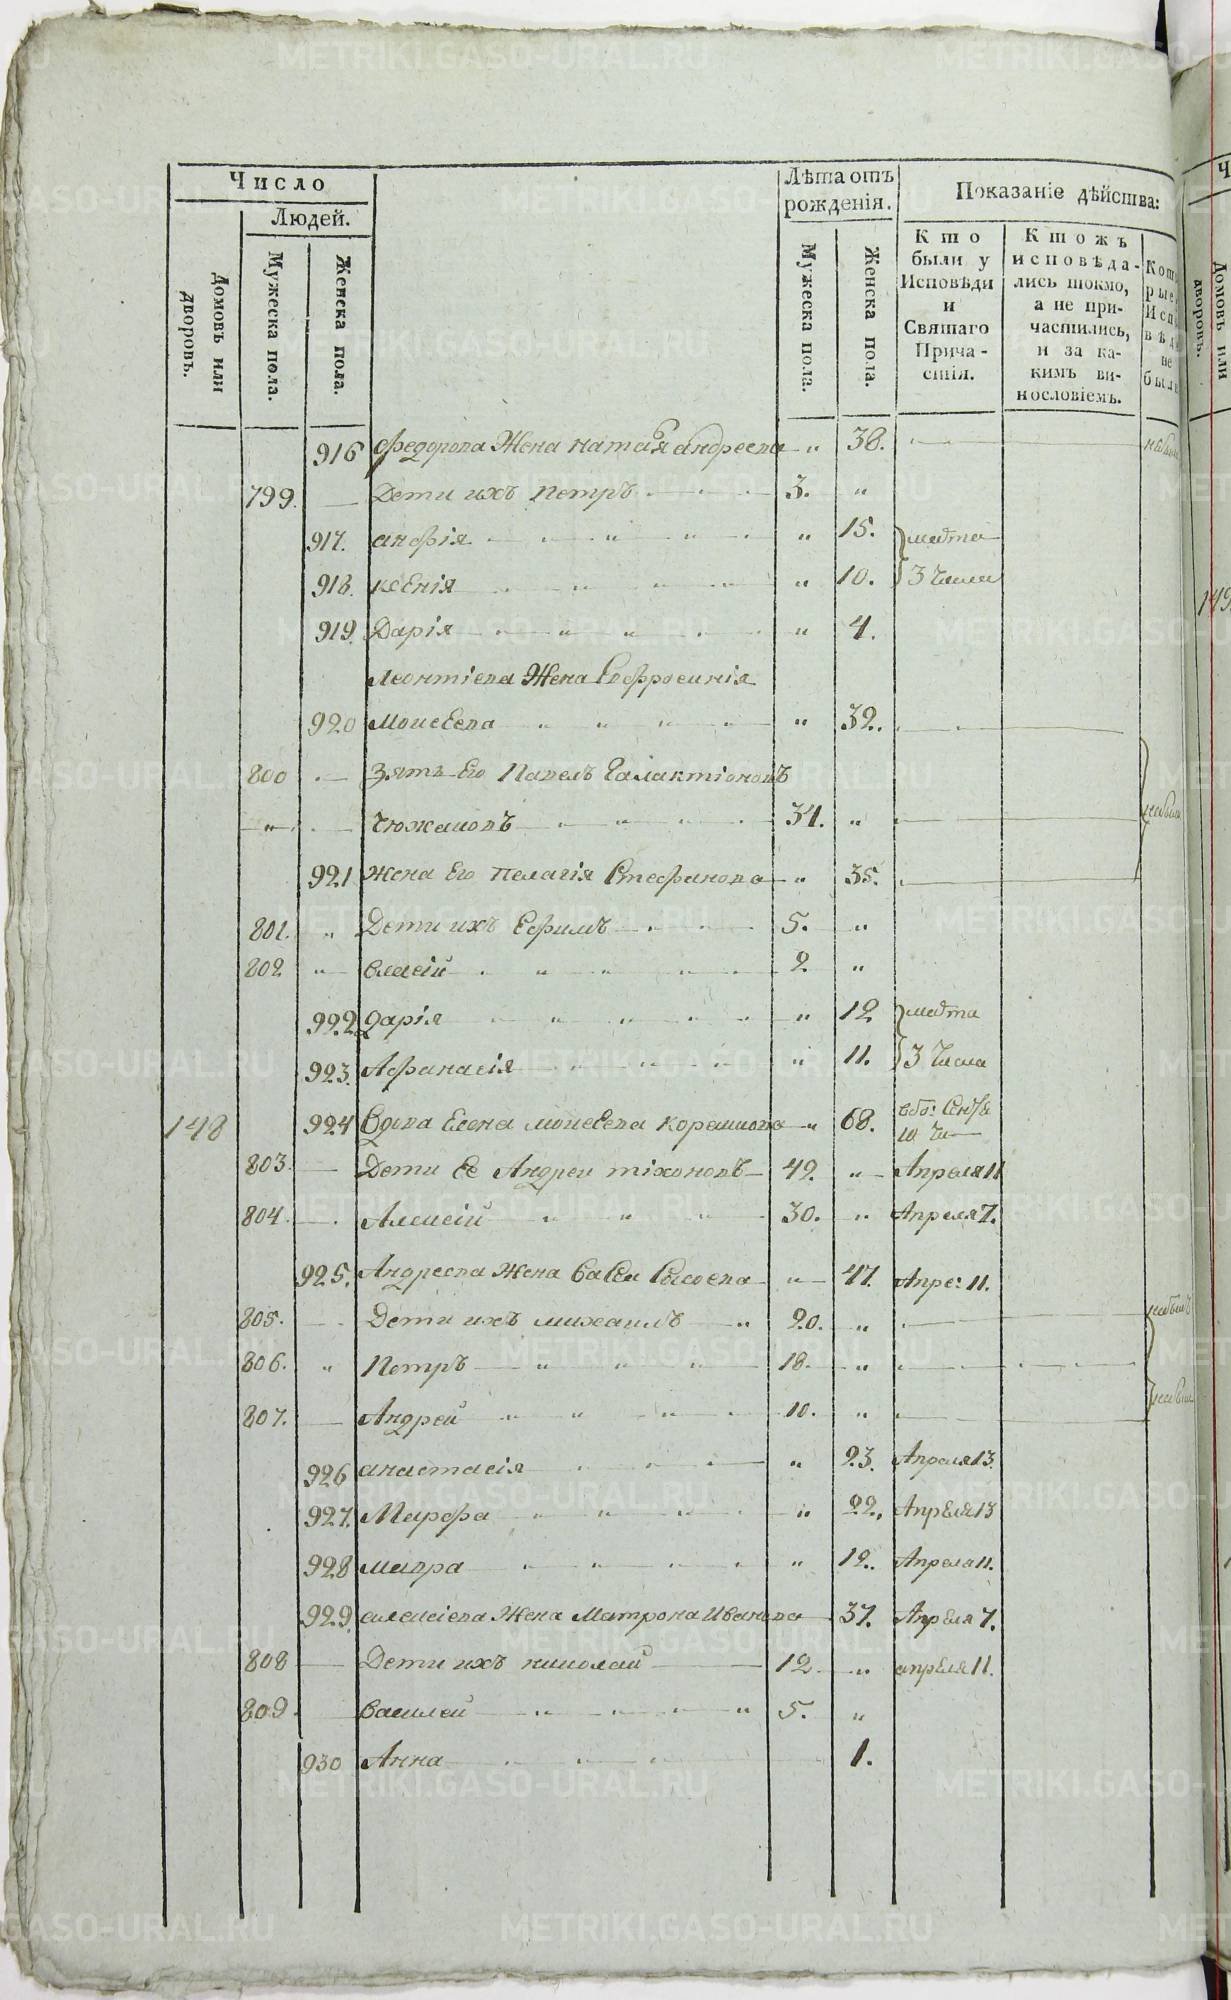 Число
Людей.
Домовъ или дворовъ.
Мужеска пола.
Женска пола.
Лѣта отъ рожденія.
Мужеска пола.
Женска пола.
Показаніе дѣйства:
Кто были у Исповѣди и Святаго Причастія.
Ктожъ исповѣдались токмо, а не причастились, и за какимъ винословіемъ.
916 Федорова Жена наталя андреева „ 38.
799. Дети ихъ Петръ 3. „
917. анфія „ 15. марта
918. ксенія „ 10. 3 числа
919. Дарія „ 4.
Леонтіева Жена Евфросинія
920 Моисеева „ 32.
800 Зять Его Павелъ Галактіоновъ
„ Чюжановъ 34. „
921 жена Его Пелагія Стефанова „ 35.
801. „ Дети ихъ Ефимъ 5. „
802 „ власій 2 „
922 Дарія „ 12 марта
923. Афанасія „ 11. 3 числа
148 924 Вдова Елена моисеева „ 68.
803. Дети Ее Андреи тіхоновъ 42. „ Апреля 11
804. Алексій 30. „ Апреля 7.
925. Андреева Жена „ 47. Апре: 11.
805. Дети ихъ михаилъ „ 20. „
806. „ Петръ 18. „
807. Андрей 10. „
926 анастасія „ 23. Апреля 13.
927. Марфа „ 22. Апреля 13
928 мавра „ 12. Апреля 11.
929. алексіева Жена Матрона Иванова 37. Апреля 7.
808 Дети ихъ николай 12 „ апреля 11.
809 василей 5. „
930 Анна 1.
METRIKI.GASO-URAL.RU